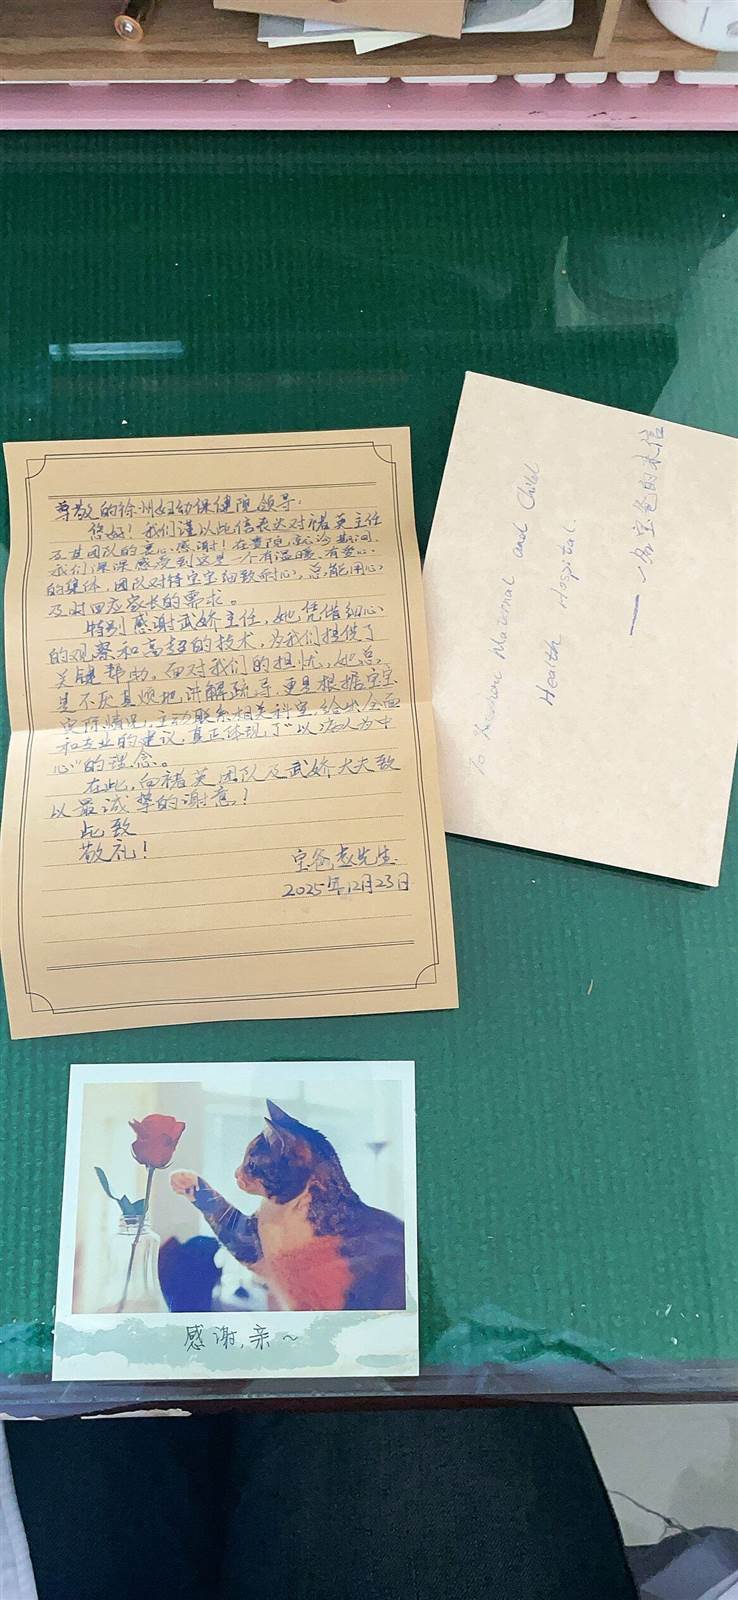 尊敬的徐州妇幼保健院领导:
您好!我们谨以此信表达对褚英主任
及其团队的衷心感谢!在贵院就诊期间,
我们深深感受到这里一个有温暖、有爱心
的集体,团队对待宝宝细致耐心,总能用心
及时回应家长的需求。
特别感谢武娇主任,她凭借细心
的观察和高超的技术,为我们提供了
关键帮助。面对我们的担忧,她总
是不厌其烦地讲解疏导,更是根据宝宝
实际情况,主动联系相关科室,给出全面
和专业的建议,真正体现了“以病人为中
心”的理念。
在此,向褚英团队及武娇大夫致
以最诚挚的谢意!
此致
敬礼!
宝爸 先生
2025年12月23日
To Xuzhou Maternal and Child
Health Hospital.
—— 一名宝爸的来信
感谢,亲~